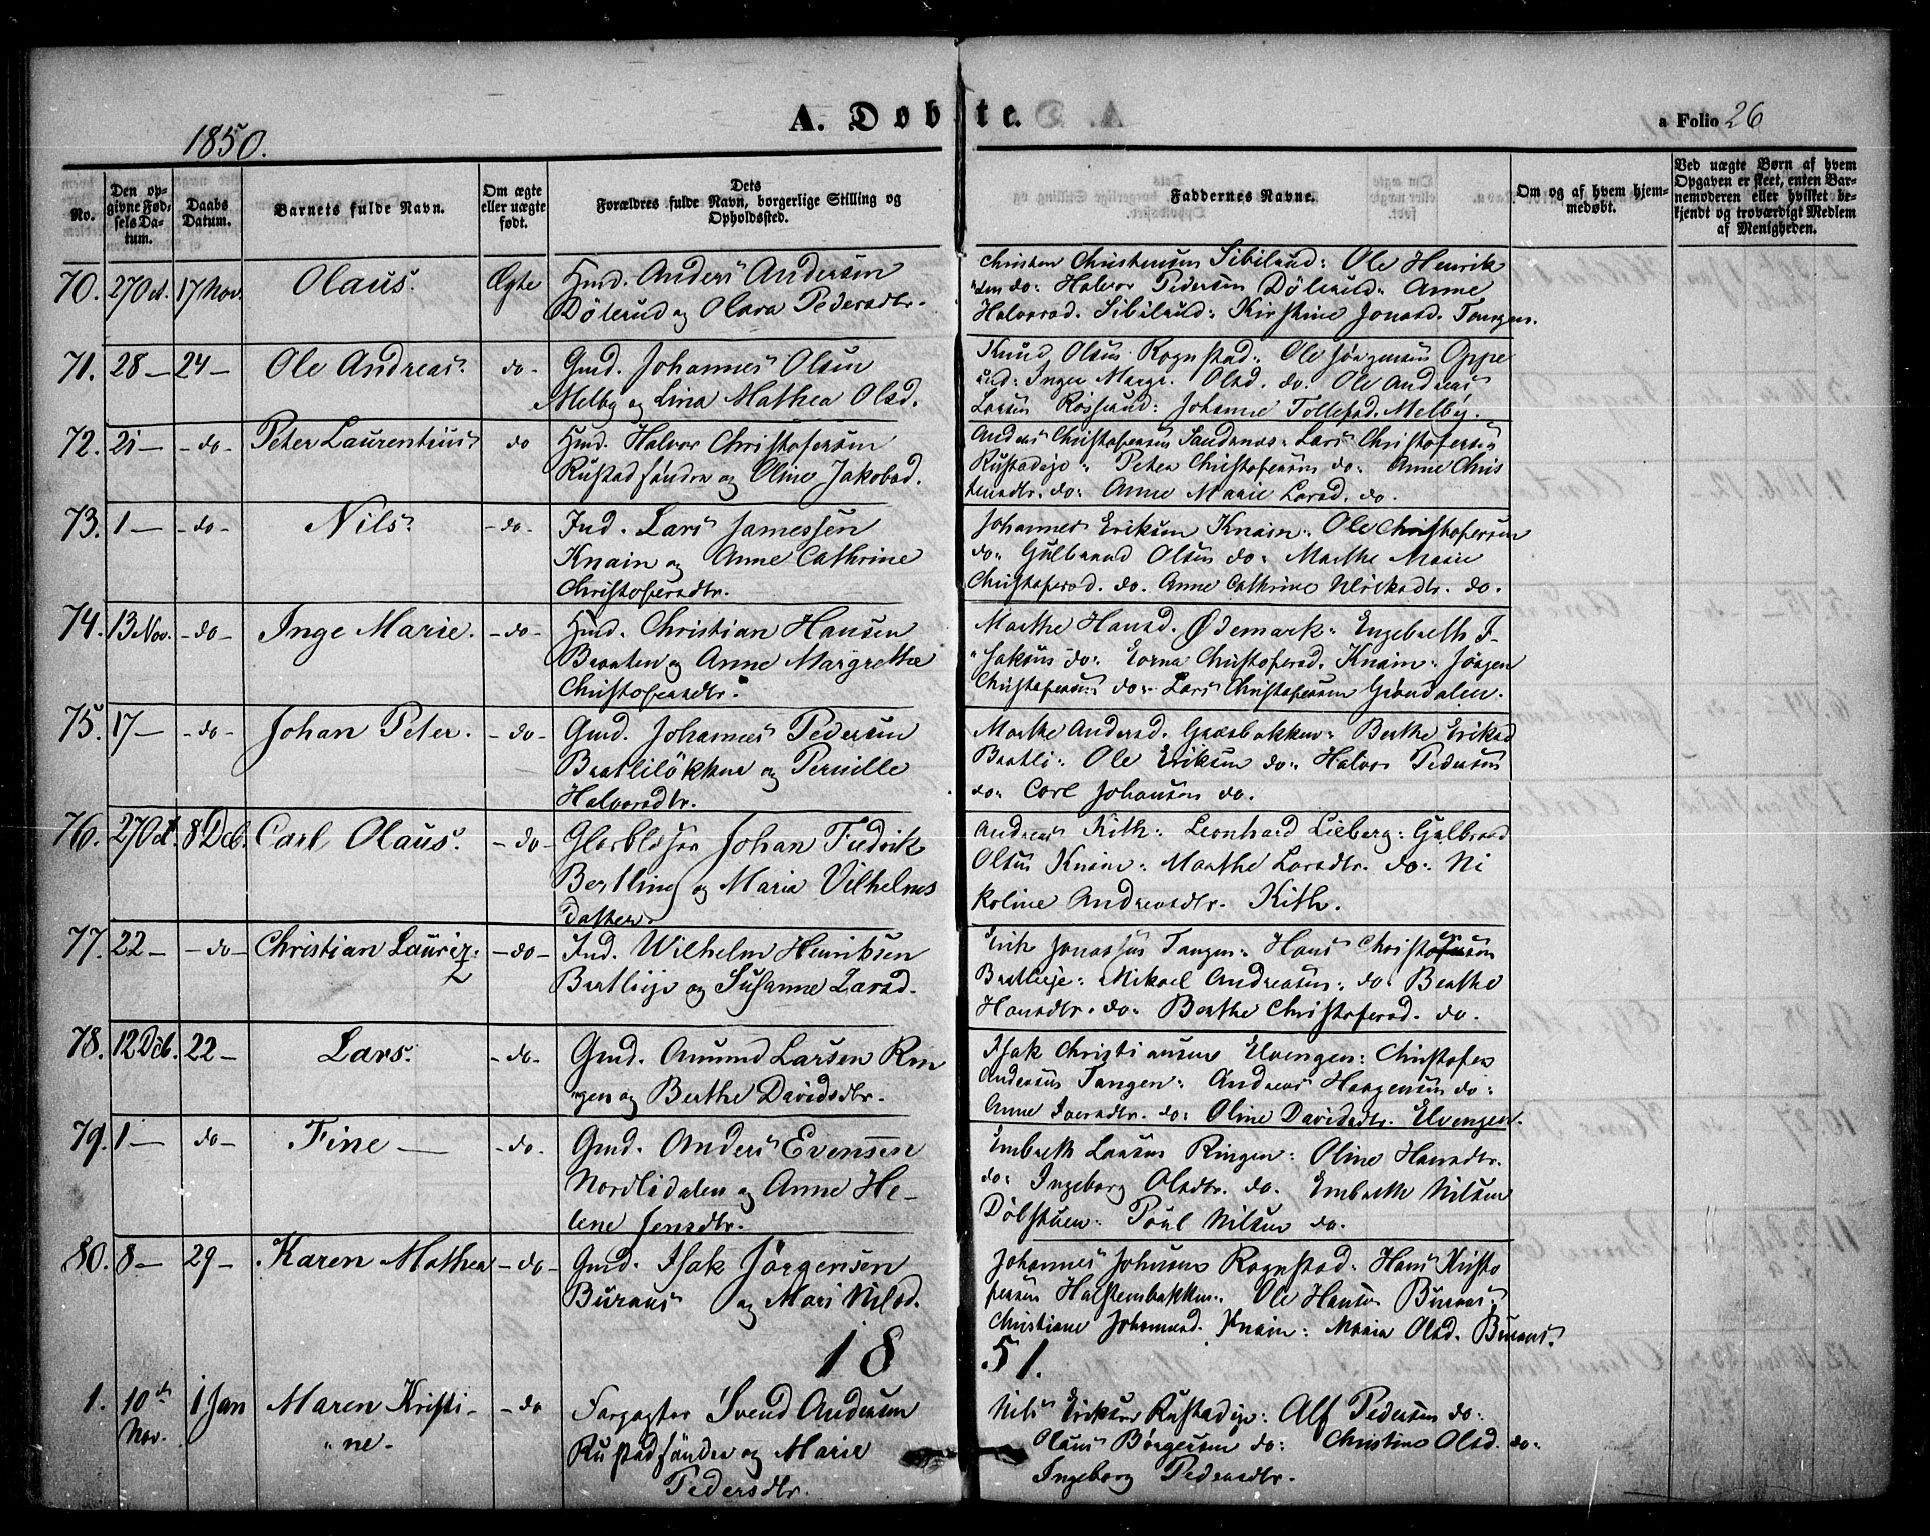 1850.
A. Døbte.
a Folio 26
No.
Den op-
givne Fød-
sels Da-
tum.
Daabs
Datum.
Barnets fulde Navn.
Om ægte
eller uægte
født.
Dets
Forældres fulde Navn, borgerlige Stilling og
Opholdssted.
Faddernes Navne.
Om og af hvem hjem-
medøbt.
Ved uægte Børn af hvem
Opgaven er skeet, enten Bar-
nemoderen eller hvilket be-
kjendt og troværdigt Medlem
af Menigheden.
70. 27 Oct. 17 Nov. Olaus. Ægte
Hmd. Anders Andersen
Dölerud og Olava Pedersdtr.
Christen Christensen Sibilrud: Ole Henrik
sen do: Halvor Pedersen Dölerud: Anne
Halvorsd. Sibilrud: Kirstine Jonasd. Tangen.
71. 28 — 24 — Ole Andreas. do-
Gmd. Johannes Olsen
Melby og Lina Mathea Olsd.
Knud Olsen Rognstad: Ole Jörgensen Oppe
rud: Inger Margr. Olsd. do. Ole Andreas
Larsen Rösrud: Johanne Tollefsd. Melby.
72. 21 — - do Peter Laurentius do
Hmd. Halvor Christofersen
Rustad söndre og Oline Jakobsd.
Anders Christofersen Sandsnæs: Lars Christofersen
Rustadeje: Peter Christofersen do: Anne Chris
tensdtr. do: Anne Marie Larsd. do.
73. 1 — - do - Nils. - do-
Ind. Lars Jamessen
Knain og Anne Cathrine
Christofersdtr.
Johannes Eriksen Knain: Ole Christofersen
do: Gulbrand Olsen do: Marthe Marie
Christofersd. do. Anne Cathrine Ulriksdtr. do.
74. 13 Nov. - do - Inge Marie. - do -
Hmd. Christian Hansen
Braaten og Anne Margrethe
Christofersdtr.
Marthe Hansd. Ødemark: Engebreth I-
saksen do: Lorna Christofersd. Knain: Jörgen
Christofersen do: Lars Christofersen Gröndalen.
75. 17 — - do - Johan Peter. - do -
Gmd. Johannes Pedersen
Bratlilökken og Pernille
Halvorsdtr.
Marthe Andersd. Græsbakken: Berthe Eriksd
Bratli: Ole Eriksen do: Halvor Pedersen
do: Carl Johansen do.
76. 27 Oct. 8 Dcb. Carl Olaus. - do -
Glasblæser Johan Fredrik
Bertling og Maria Vilhelms
datter.
Andreas Kith: Leonhard Lieberg: Gulbrand
Olsen Knain: Marthe Larsdtr. do: Ni
koline Andreasdtr. Kith.
77. 22 — - do - Christian Lauritz. - do -
Ind. Wilhelm Henriksen
Bratlieje og Susanne Larsd.
Erik Jonassen Tangen: Hans Christensen
Bratlieje: Mikael Andreasen: do: Berthe
Hansdtr. do: Berthe Christofersd. do.
78. 12 Dcb. 22 — Lars. - do-
Gmd. Amund Larsen Rin
gen og Berthe Davidsdtr.
Isak Christiansen Elvengen: Christofer
Andersen Tangen: Andreas Haagensen do:
Anne Iversdtr. do: Oline Davidsdtr. Elvengen.
79. 1 — do - Tine — - do-
Gmd. Anders Evensen
Nordlidalen og Anne He-
lene Jensdtr.
Embreth Larsen Ringen: Oline Hansdtr.
do: Ingeborg Olsdtr. do. Embreth Nilsen
Dölstuen: Poul Nilsen do.
80. 8 — 29 — Karen Mathea - do -
Gmd. Isak Jörgensen
Buraas og Mari Nilsd.
Johannes Johnsen Rognstad: Hans Kristo
fersen Halstenbakken: Ole Hansen Buraas:
Christiane Johannesd. Knain: Maria Olsd. Buraas.
1851.
1. 10de Nov. 1 Jan Maren Kristi-
ne. - do
Forpagter Svend Andersen
Rustad söndre og Marie
Pedersdtr.
Nils Eriksen Rustadeje: Alf Pedersen do:
Olaus Börgersen do: Christine Olsd. do:
Ingeborg Pedersdtr.